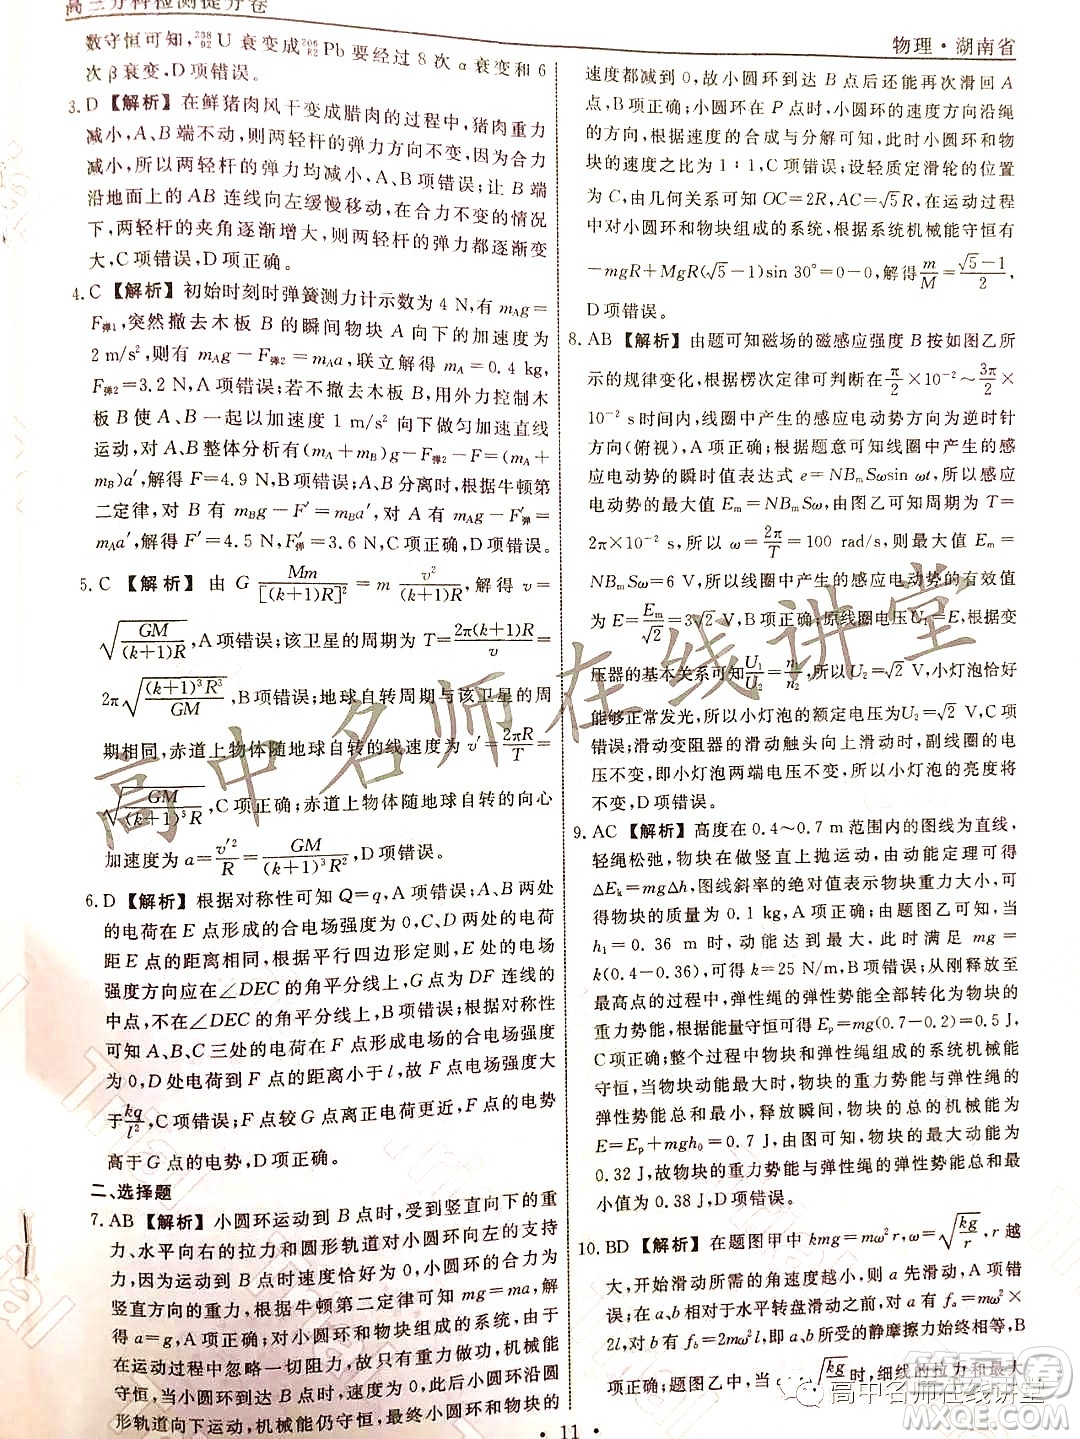 高三分科检测提分卷
物理·湖南省
数守恒可知,²³⁸₉₂U 衰变成²⁰⁶₈₂Pb 要经过 8 次 α 衰变和 6
次 β 衰变,D 项错误。
3. D 【解析】在鲜猪肉风干变成腊肉的过程中,猪肉重力
减小,A、B 端不动,则两轻杆的弹力方向不变,因为合力
减小,所以两轻杆的弹力均减小,A、B 项错误;让 B 端
沿地面上的 AB 连线向左缓慢移动,在合力不变的情况
下,两轻杆的夹角逐渐增大,则两轻杆的弹力都逐渐变
大,C 项错误、D 项正确。
4. C 【解析】初始时刻时弹簧测力计示数为 4 N,有 mAg=
F弹1,突然撤去木板 B 的瞬间物块 A 向下的加速度为
2 m/s²,则有 mAg−F弹2=mAa,联立解得 m=0.4 kg,
F弹2=3.2 N,A 项错误;若不撤去木板 B,而是控制木
板 B 使 A、B 一起以加速度 1 m/s² 向下做匀加速直线
运动,对 A、B 整体分析有(mA+mB)g−F弹=(mA+
mB)a′,解得 F=4.9 N,B 项错误;分离后,根据牛顿第
二定律,对 B 有 mBg−F′=0,对 A 有 mAg−F′弹=
mAa′,解得 F′=4.5 N,F′弹=3.6 N,C 项正确,D 项错误。
5. C 【解析】由 G Mm/[(k+1)R]²=m v²/(k+1)R,解得 v=
√(GM/(k+1)R),A 项错误;该卫星的周期为 T=2π(k+1)R/v=
2π√((k+1)³R³/GM),B 项错误;地球自转周期与该卫星的周
期相同,赤道上物体随地球自转的线速度为 v′=2πR/T=
√(GM/(k+1)³R),C 项正确;赤道上物体随地球自转的向心
加速度为 a=v′²/R=GM/(k+1)³R²,D 项错误。
6. D 【解析】根据对称性可知 Q=q,A 项错误;A、B 两处
的电荷在 E 点形成的合电场强度为0,C、D 两处的电荷
距 E 点的距离相同,根据平行四边形定则,E 点的电场
强度方向应在∠DEC 的角平分线上,G 点为 DF 连线的
中点,不在∠DEC 的角平分线上,B 项错误;根据对称性
可知 A、B、C 三处的电荷在 F 点形成的合电场强度
为 0,D 处电荷到 F 点的距离小于 l,故 F 点的场强大
于kq/l²,C 项错误;F 点较 G 点离正电荷更近,F 点的电势
高于 G 点的电势,D 项正确。
二、选择题
7. AB 【解析】小圆环运动到 B 点时,受到竖直向下的重
力、水平向右的拉力和圆形轨道对小圆环水平向左的支持
力,因为运动到 B 点时速度为0,小圆环所受的合力为
竖直方向的重力,根据牛顿第二定律可知 mg=ma,解
得 a=g,A 项正确;对小圆环和物块组成的系统,由于
在运动过程中忽略一切阻力,故系统机械能守
恒,当小圆环从 A 点运动到 B 点后,小圆环沿圆
形轨道向下运动,机械能仍守恒,最终小圆环和物块的
速度都为0,故小圆环到达 B 点后还能再次滑回 A
点,B 项正确;小圆环在 P 点时,小圆环的速度方向沿绳
的方向,根据速度的合成与分解可知,此时小圆环和物
块的速度之比为 1∶1,C 项错误;设轻质定滑轮的位置
为 C,由几何关系可知 OC=2R,AC=√5R,在运动过程
中,对小圆环和物块组成的系统,根据系统机械能守恒有
−mgR+MgR(√5−1)sin 30°=0−0,解得m/M=(√5−1)/2,
D 项错误。
8. AB 【解析】由题可知磁场的磁感应强度 B 按如图乙所
示的规律变化,根据楞次定律可判断在π/2×10⁻²～3π/2×
10⁻² s 时间内,线圈中产生的感应电动势方向为逆时针
方向(俯视),A 项正确;根据题意可知线圈中产生的感
应电动势的瞬时值表达式 e=NBmSωsin ωt,所以感应
电动势的最大值 Em=NBmSω,由图乙可知周期为 T=
2π×10⁻² s,所以 ω=2π/T=100 rad/s,由于最大值 Em=
NBmSω=6 V,则线圈中产生的感应电动势的有效值
为 E=Em/√2=3√2 V,B 项正确;原线圈电压U₁=E,根据变
压器的基本关系可知U₁/U₂=n₁/n₂,解得U₂=√2 V,小灯泡恰好
能够正常发光,所以小灯泡的额定电压为U₂=√2 V,C 项
错误;滑动变阻器的滑动触头向上滑动时,副线圈的电
压不变,即小灯泡两端电压不变,则小灯泡的亮度将
不变,D 项错误。
9. AC 【解析】高度在 0.4～0.7 m 范围内的图线为直线,
轻绳松弛,物块在做竖直上抛运动,由动能定理可得
ΔEk=mgΔh,图线斜率的绝对值表示物块重力大小,可
得物块的质量为 0.1 kg,A 项正确;由题图乙可知,当
h₁=0.36 m 时,动能达到最大,此时满足 mg=
k(0.4−0.36),可得 k=25 N/m,B 项错误;从刚释放至
最高点的过程中,弹性绳的弹性势能全部转化为物块的
重力势能,根据能量守恒可得 Ep=mg(0.7−0.2)=0.5 J,
C 项正确;整个过程中物块和弹性绳组成的系统机械能
守恒,当物块动能最大时,物块的重力势能与弹性绳的
弹性势能总和最小,释放瞬间,物块的重力势能为
E=Ep+mgh₀=0.7 J,由题图乙可知物块的最大动能为
0.32 J,故物块的重力势能与弹性绳的弹性势能总和最
小值为 0.38 J,D 项错误。
10. BD 【解析】在题图甲中 kmg=mω²r,ω=√(kg/r),r 越
大,开始滑动所需的角速度越小,a 先滑动,A 项错
误;在 a、b 相对于水平转盘滑动之前,对 a 有 fa=mω²·
2l,对 b 有 fb=2mω²l,则 a、b 所受的静摩擦力始终相等,B
11
高中名师在线讲堂
高中名师在线讲堂
答案圈
MXQE.COM